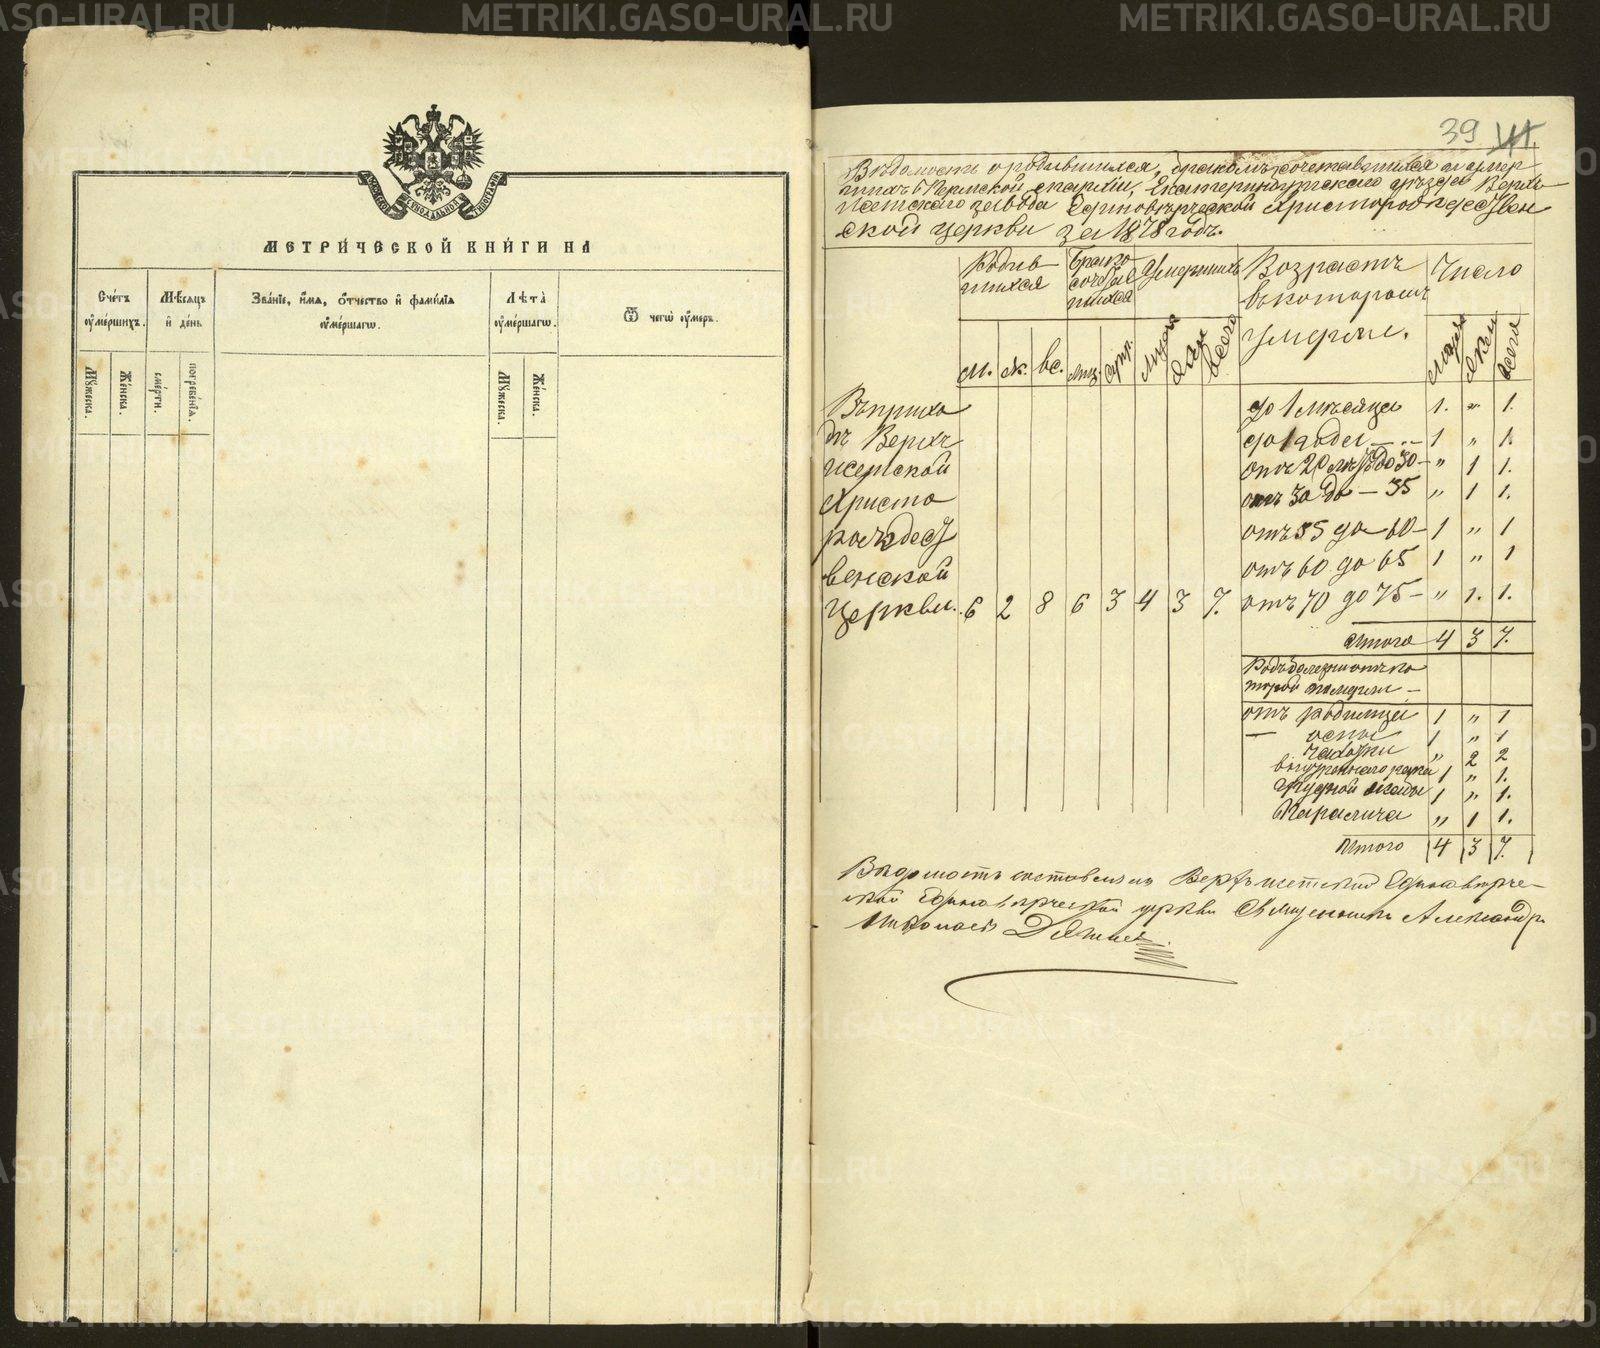 METRIKI.GASO-URAL.RU
МЕТРИ́ЧЕСКОЙ КНИ́ГИ НА
Сче́тъ ᲂу҆ме́ршихъ.
Мѣ́сяцъ и҆ де́нь
Зва́нїе, и҆́мя, ѻ҆́тчество и҆ фами́лїя ᲂу҆ме́ршагѡ.
Лѣ́та ᲂу҆ме́ршагѡ.
Ѿ чегѡ̀ ᲂу҆́меръ.
Мꙋ́жеска.
Же́нска.
сме́рти.
погребе́нїя.
Мꙋ́жеска.
Же́нска.
39
Вѣдомость о родившихся, бракомъ сочетавшихся и умер
шихъ Пермской епархіи, Екатеринбургскаго уѣзда Верхъ
Исетскаго завода Единовѣрческой Христорождествен
ской церкви за 1878 годъ.
Родив
шихся
Брако
сочетав
шихся
Умершихъ
Возрастъ
въ которомъ
умерли.
Число
м. ж. вс. супр. Муж Жен всего
Муж Жен всего
Въ прихо
дѣ Верхъ
исетской
Христо
рождест
венской
церкви. 6 2 8 6 3 4 3 7.
до 1 мѣсяца 1. " 1.
до 1 года — 1 " 1.
отъ 20 лѣтъ до 30 — " 1 1.
отъ 30 до — 35 " 1 1.
отъ 55 до 60 — 1 " 1
отъ 60 до 65 1 " 1
отъ 70 до 75 — " 1. 1.
Итого 4 3 7.
Родъ болезни отъ ко
торой померли —
отъ родимца 1 " 1
— оспы 1 " 1
чахотки " 2 2
внутренняго рака 1 " 1.
грудной жабы 1 " 1.
Паралича " 1 1.
Итого 4 3 7.
Вѣдомость составлялъ Верхъ исетской Единовѣрче-
ской церкви Священникъ Александр
Николаевъ